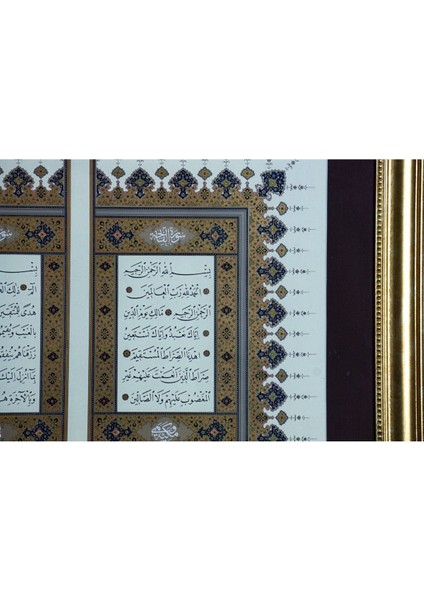 سورة الفاتحة
بسم الله الرحمن الرحيم
الحمد لله رب العالمين
الرحمن الرحيم مالك يوم الدين
إياك نعبد وإياك نستعين
اهدنا الصراط المستقيم
صراط الذين أنعمت عليهم غير
المغضوب عليهم ولا الضالين
الم ذلك الك
هدى للمتقين
بالغيب ويقيمو
رزقناهم ينفقو
بما أنزل إليك
وبالآخرة هم